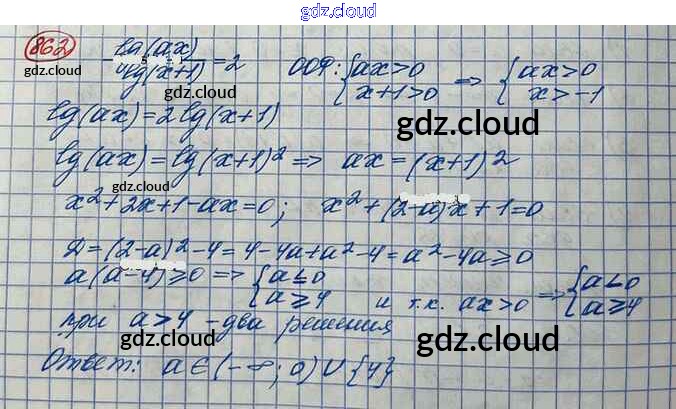 gdz.cloud
862 lg(ax)/lg(x+1) = 2 ООФ: { ax>0 x+1>0 => { ax>0 x>-1
gdz.cloud
lg(ax)=2lg(x+1)
gdz.cloud
lg(ax)=lg(x+1)² => ax=(x+1)²
gdz.cloud
x²+2x+1-ax=0; x²+(2-a)x+1=0
Д=(2-a)²-4=4-4a+a²-4=a²-4a≥0
a(a-4)≥0 => { a≤0 a≥4 и т.к. ax>0 => { a<0 a≥4
gdz.cloud
при a>4 - два решения
gdz.cloud gdz.cloud
Ответ: a∈(-∞; 0)∪{4}